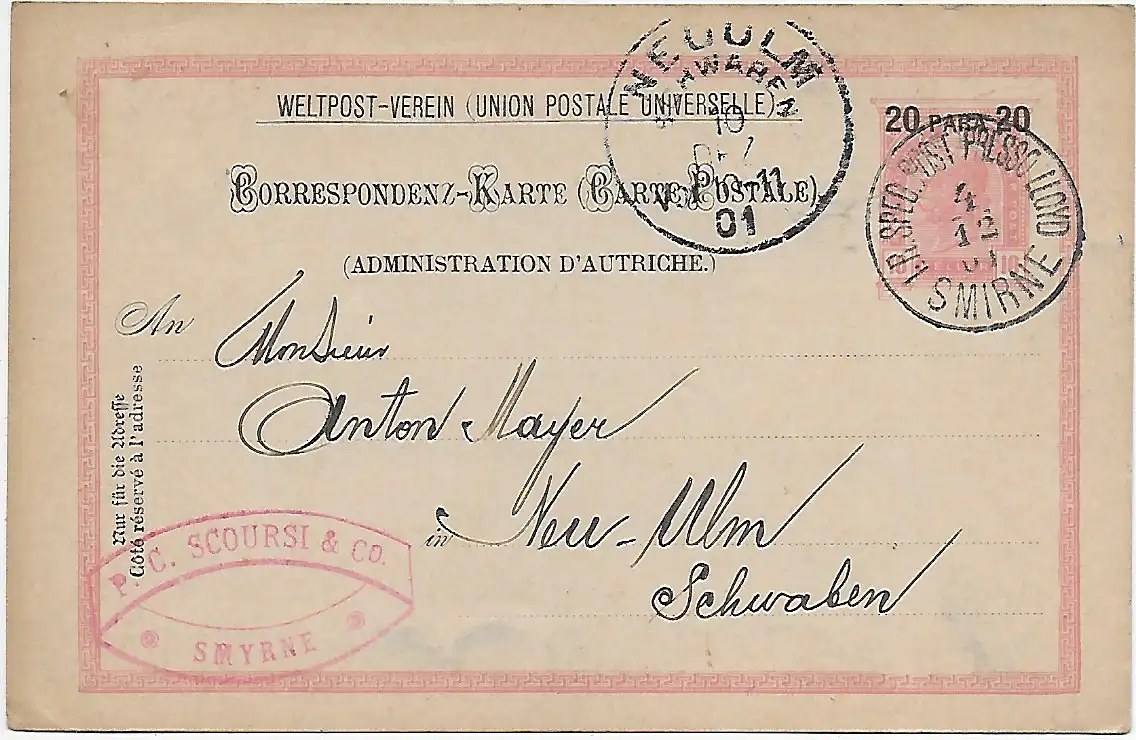 WELTPOST-VEREIN (UNION POSTALE UNIVERSELLE).
CORRESPONDENZ-KARTE (CARTE POSTALE)
(ADMINISTRATION D'AUTRICHE.)
NEUULM
SCHWABEN
10
DEZ
V. 10-11
01
20 PARA 20
10 10
I.R. SPED. POST. PRESSO LLOYD
4
12
01
SMIRNE
An
Monsieur
Anton Mayer
in Neu-Ulm
Schwaben
Nur für die Adresse
Côté réservé à l'adresse
P. C. SCOURSI & CO.
SMYRNE